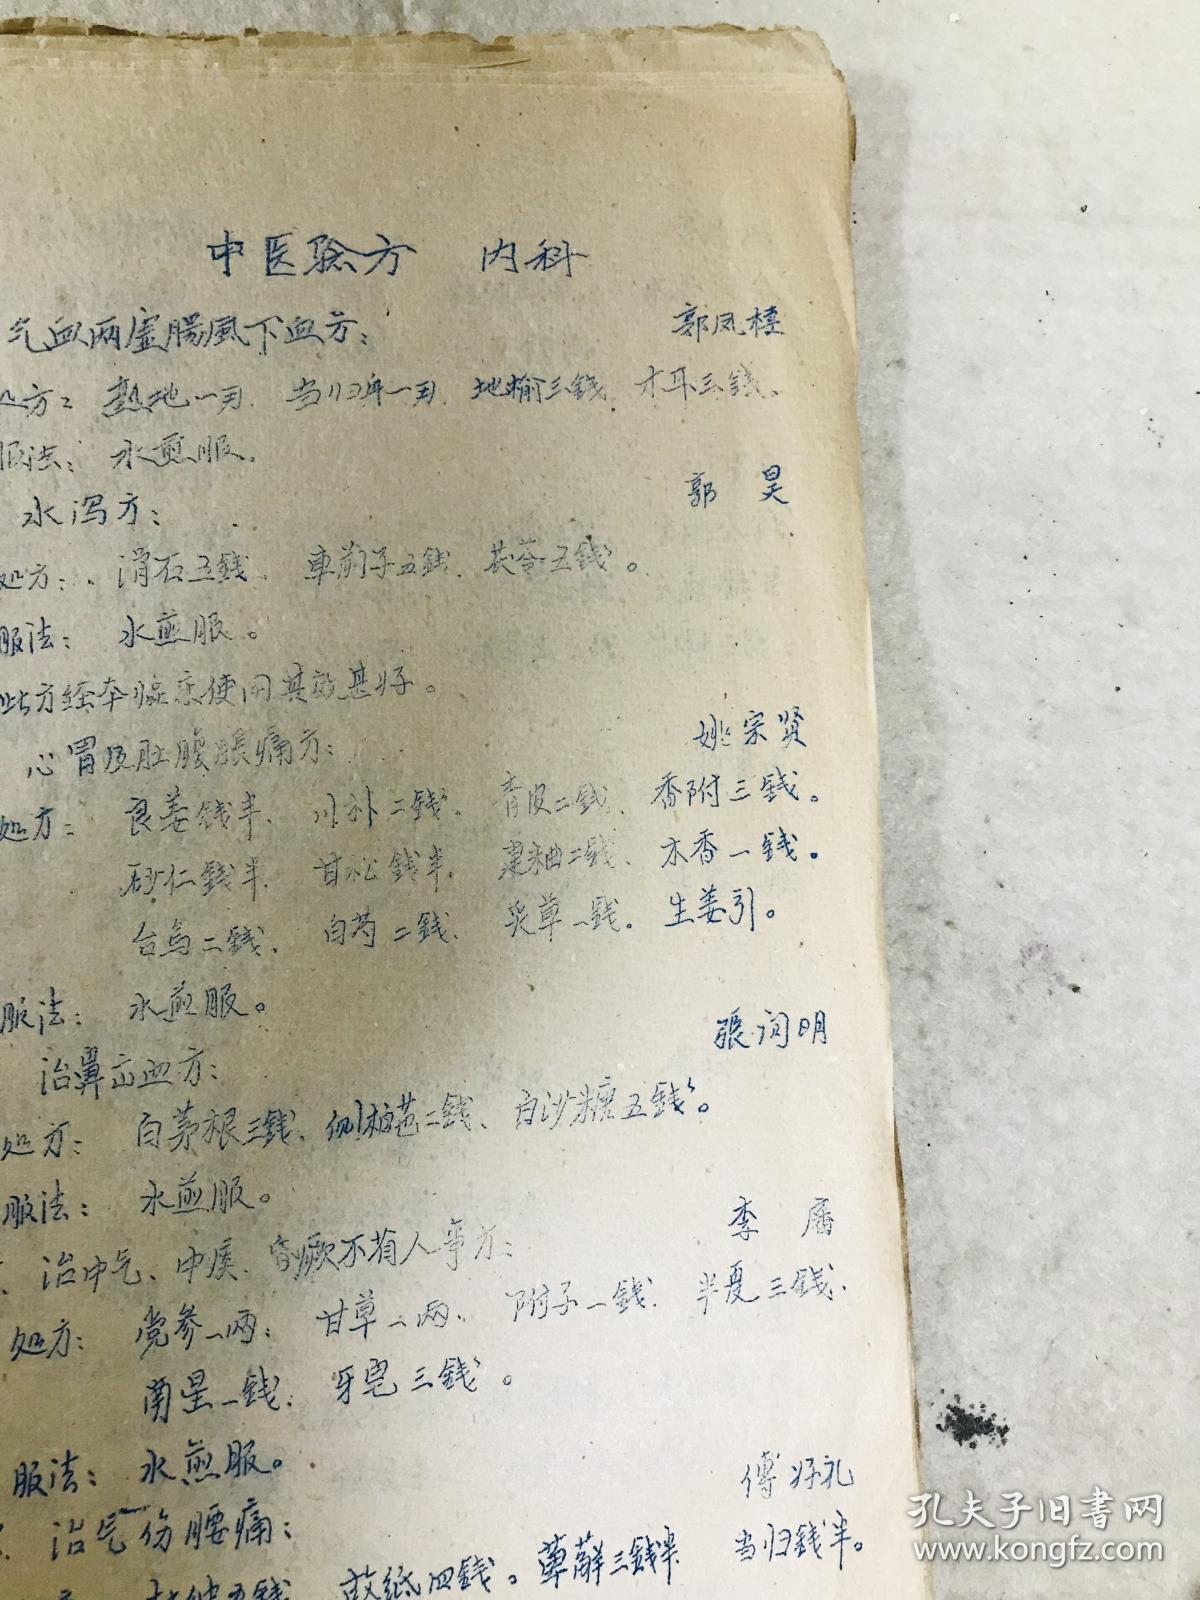 中医验方 内科
气血两虚腸風下血方: 郭凤楼
处方: 熟地一两、当归一两、地榆三錢、木耳三錢。
服法: 水煎服。
郭 昊
水泻方:
处方: 滑石五錢、車前子五錢、茯苓五錢。
服法: 水煎服。
此方经本临床使用其效甚好。
姚宗贤
心胃及肚腹脹痛方:
处方: 良姜錢半、川朴二錢、青皮二錢、香附三錢。
砂仁錢半、甘松錢半、建曲二錢、木香一錢。
台乌二錢、白芍二錢、炙草一錢。生姜引。
服法: 水煎服。
張润明
治鼻出血方:
处方: 白茅根三錢、侧柏芭二錢、白沙糖五錢。
服法: 水煎服。
李
治中气、中痰、昏厥不省人事方:
处方: 党参一两、甘草一两、附子一錢、半夏三錢、
南星一錢、牙皂三錢。
服法: 水煎服。
傅好礼
治气伤腰痛:
杜仲五錢 故紙四錢。萆薢三錢半 当归錢半。
孔夫子旧书网
www.kongfz.com